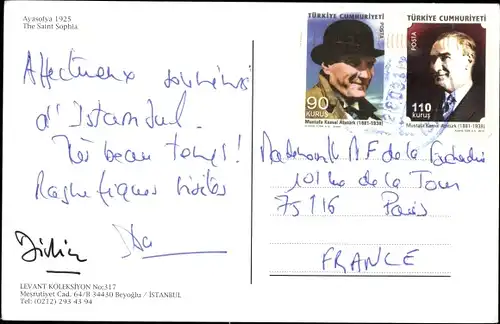 Ayasofya 1925
The Saint Sophia
Affectueux souvenirs
d'Istambul.
Très beau temps!
Magnifiques visites
LEVANT KOLEKSİYON No:317
Meşrutiyet Cad. 64/B 34430 Beyoğlu / İSTANBUL
Tel: (0212) 293 43 94
TÜRKİYE CUMHURİYETİ
POSTA
90
KURUŞ
Mustafa Kemal Atatürk (1881-1938)
TÜRKİYE CUMHURİYETİ
POSTA
110
KURUŞ
Mustafa Kemal Atatürk (1881-1938)
M.F de la
101 rue de la Tour
75116 Paris
FRANCE